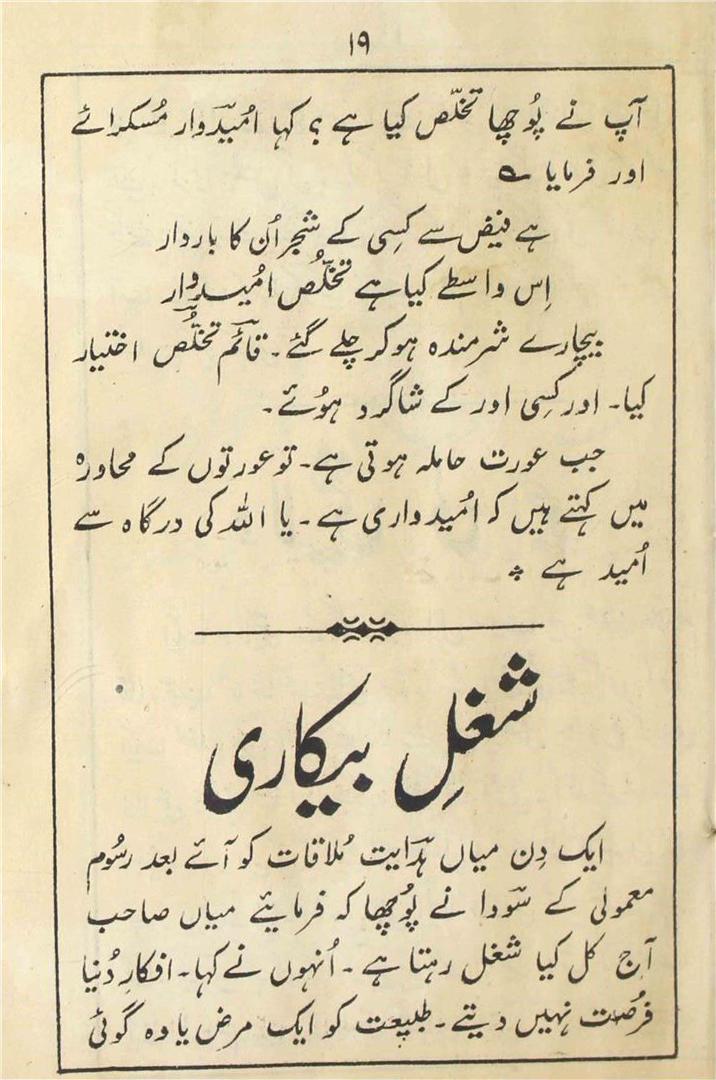 ۱۹
آپ نے پُوچھا تخلّص کیا ہے؟ کہا اُمیدوار مُسکرائے
اور فرمایا ؎
ہے فیض سے کِسی کے شجر اُن کا باردار
اِس واسطے کیا ہے تخلّص اُمیدوار
بیچارے شرمندہ ہوکر چلے گئے۔ قائم تخلّص اختیار
کیا۔ اور کِسی اور کے شاگرد ہُوئے۔
جب عورت حاملہ ہوتی ہے۔ تو عورتوں کے محاورہ
میں کہتے ہیں کہ اُمیدواری ہے۔ یا اللہ کی درگاہ سے
اُمید ہے ٭
شغلِ بیکاری
ایک دِن میاں ہدایت مُلاقات کو آئے بعد رسُوم
معمولی کے سودا نے پُوچھا کہ فرمائیے میاں صاحب
آج کل کیا شغل رہتا ہے۔ اُنہوں نے کہا۔ افکارِ دُنیا
فرُصت نہیں دیتے۔ طبیعت کو ایک مرض یاوہ گوئی